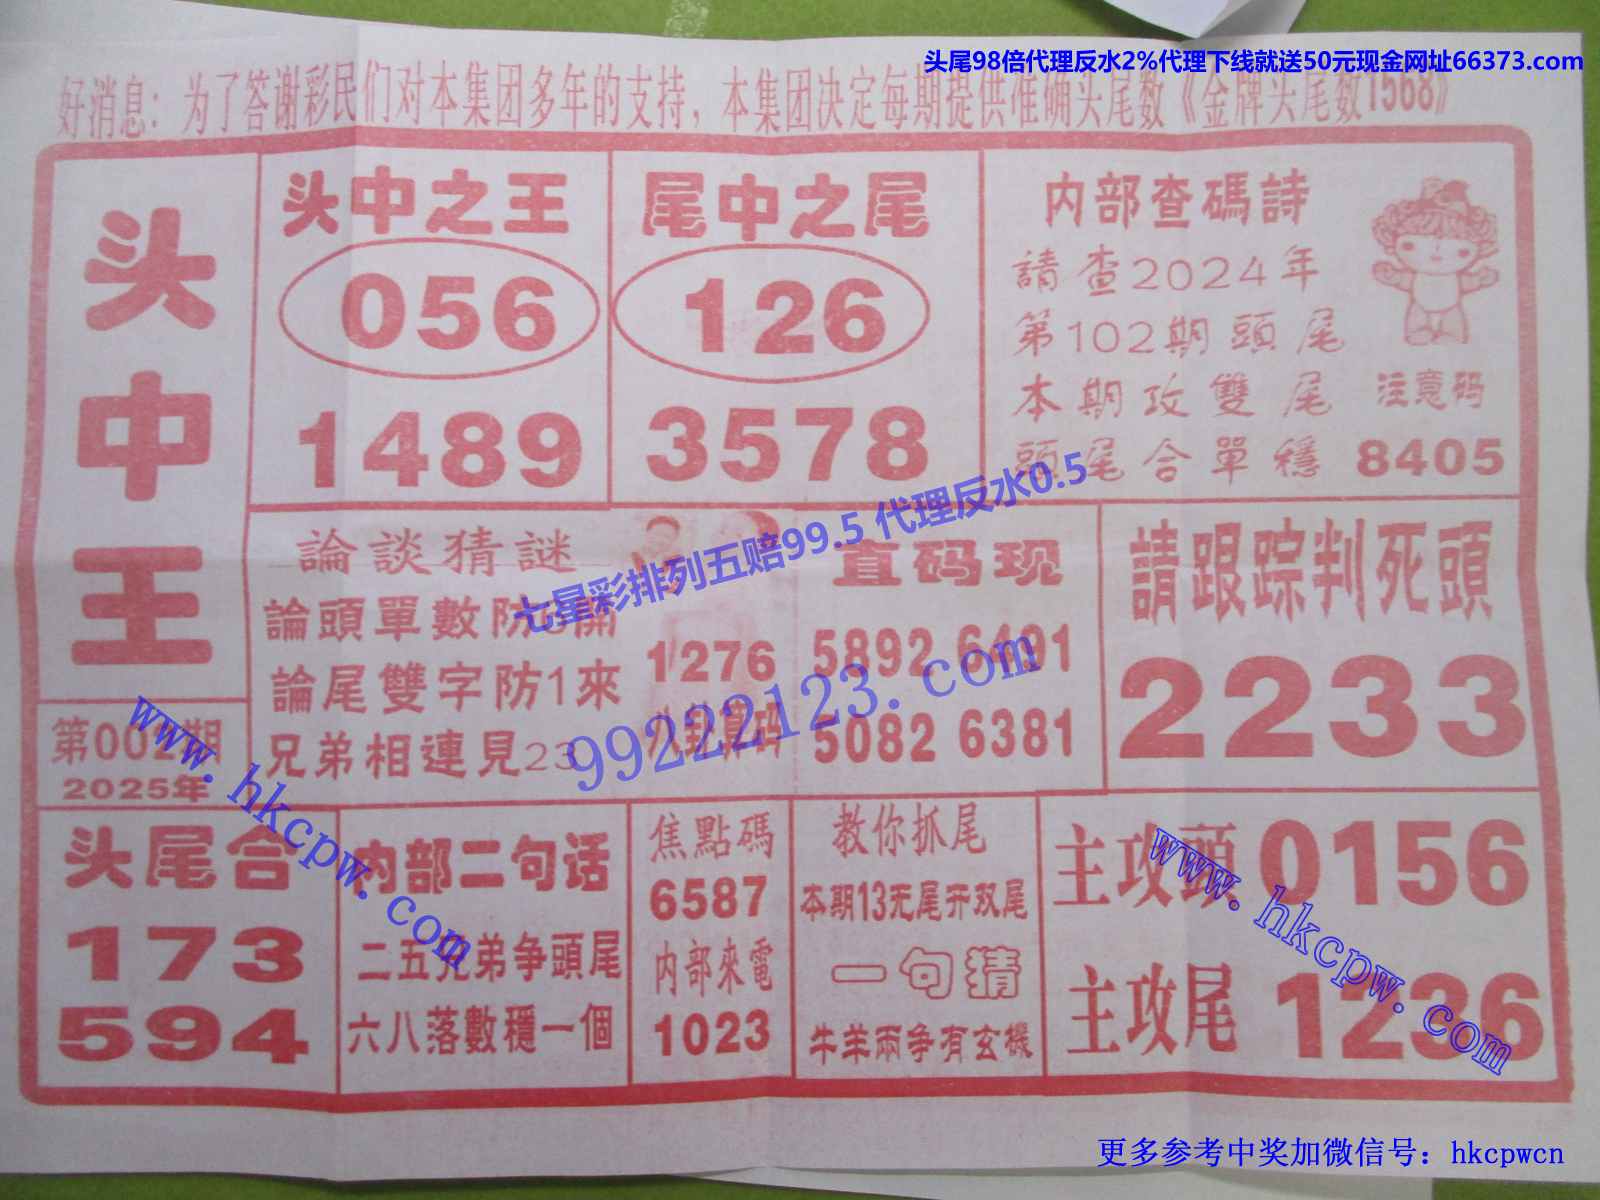 头尾98倍代理反水2%代理下线就送50元现金网址66373.com
好消息：为了答谢彩民们对本集团多年的支持，本集团决定每期提供准确头尾数《金牌头尾数1568》
头中王
第002期
2025年
头中之王
056
1489
尾中之尾
126
3578
内部查碼詩
請查2024年
第102期頭尾
本期攻雙尾
頭尾合單穩
注意码
8405
論談猜謎
論頭單數防 開
論尾雙字防1來
兄弟相連見23
1276
八卦算码
直码现
5892 6491
5082 6381
請跟踪判死頭
2233
七星彩排列五赔99.5 代理反水0.5
99222123.com
www.hkcpw.com
头尾合
173
594
内部二句话
二五兄弟争頭尾
六八落數穩一個
焦點碼
6587
内部來電
1023
教你抓尾
本期13无尾开双尾
一句猜
牛羊兩争有玄機
主攻頭0156
主攻尾1236
www.hkcpw.com
更多参考中奖加微信号：hkcpwcn